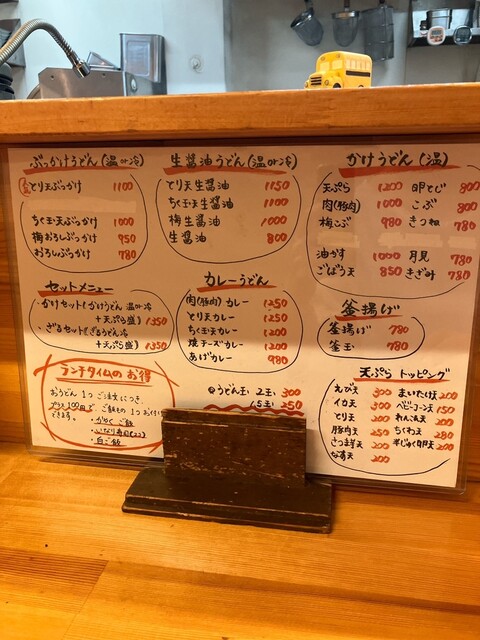 ぶっかけうどん(温or冷)
とり天ぶっかけ 1100
ちく玉天ぶっかけ 1000
梅おろしぶっかけ 950
おろしぶっかけ 780
生醤油うどん(温or冷)
とり天生醤油 1150
ちく玉天生醤油 1100
梅生醤油 1000
生醤油 800
かけうどん(温)
天ぷら 1200 卵とじ 800
肉(豚肉) 1000 こぶ 800
梅こぶ 980 きつね 780
油かす 1000 月見 780
ごぼう天 850 きざみ 780
セットメニュー
・かけセット(かけうどん 温or冷
+天ぷら盛) 1350
・ざるセット(ざるうどん冷
+天ぷら盛) 1350
カレーうどん
肉(豚肉)カレー 1250
とり天カレー 1250
ちく玉天カレー 1200
焼チーズカレー 1200
あげカレー 980
釜揚げ
釜揚げ 780
釜玉 780
ランチタイムのお得
おうどん1つご注文につき
プラス100円で ご飯もの1つお付け
できます。
・かやくご飯
・いなり寿司(2コ)
・白ご飯
@うどん玉 2玉 300
1.5玉 250
天ぷら トッピング
えび天 300 まいたけ天 200
イカ天 300 ベビーコーン天 150
とり天 200 れんこん天 200
豚肉天 250 ちくわ天 280
さつま芋天 300 半じゅく卵天 200
なす天 200